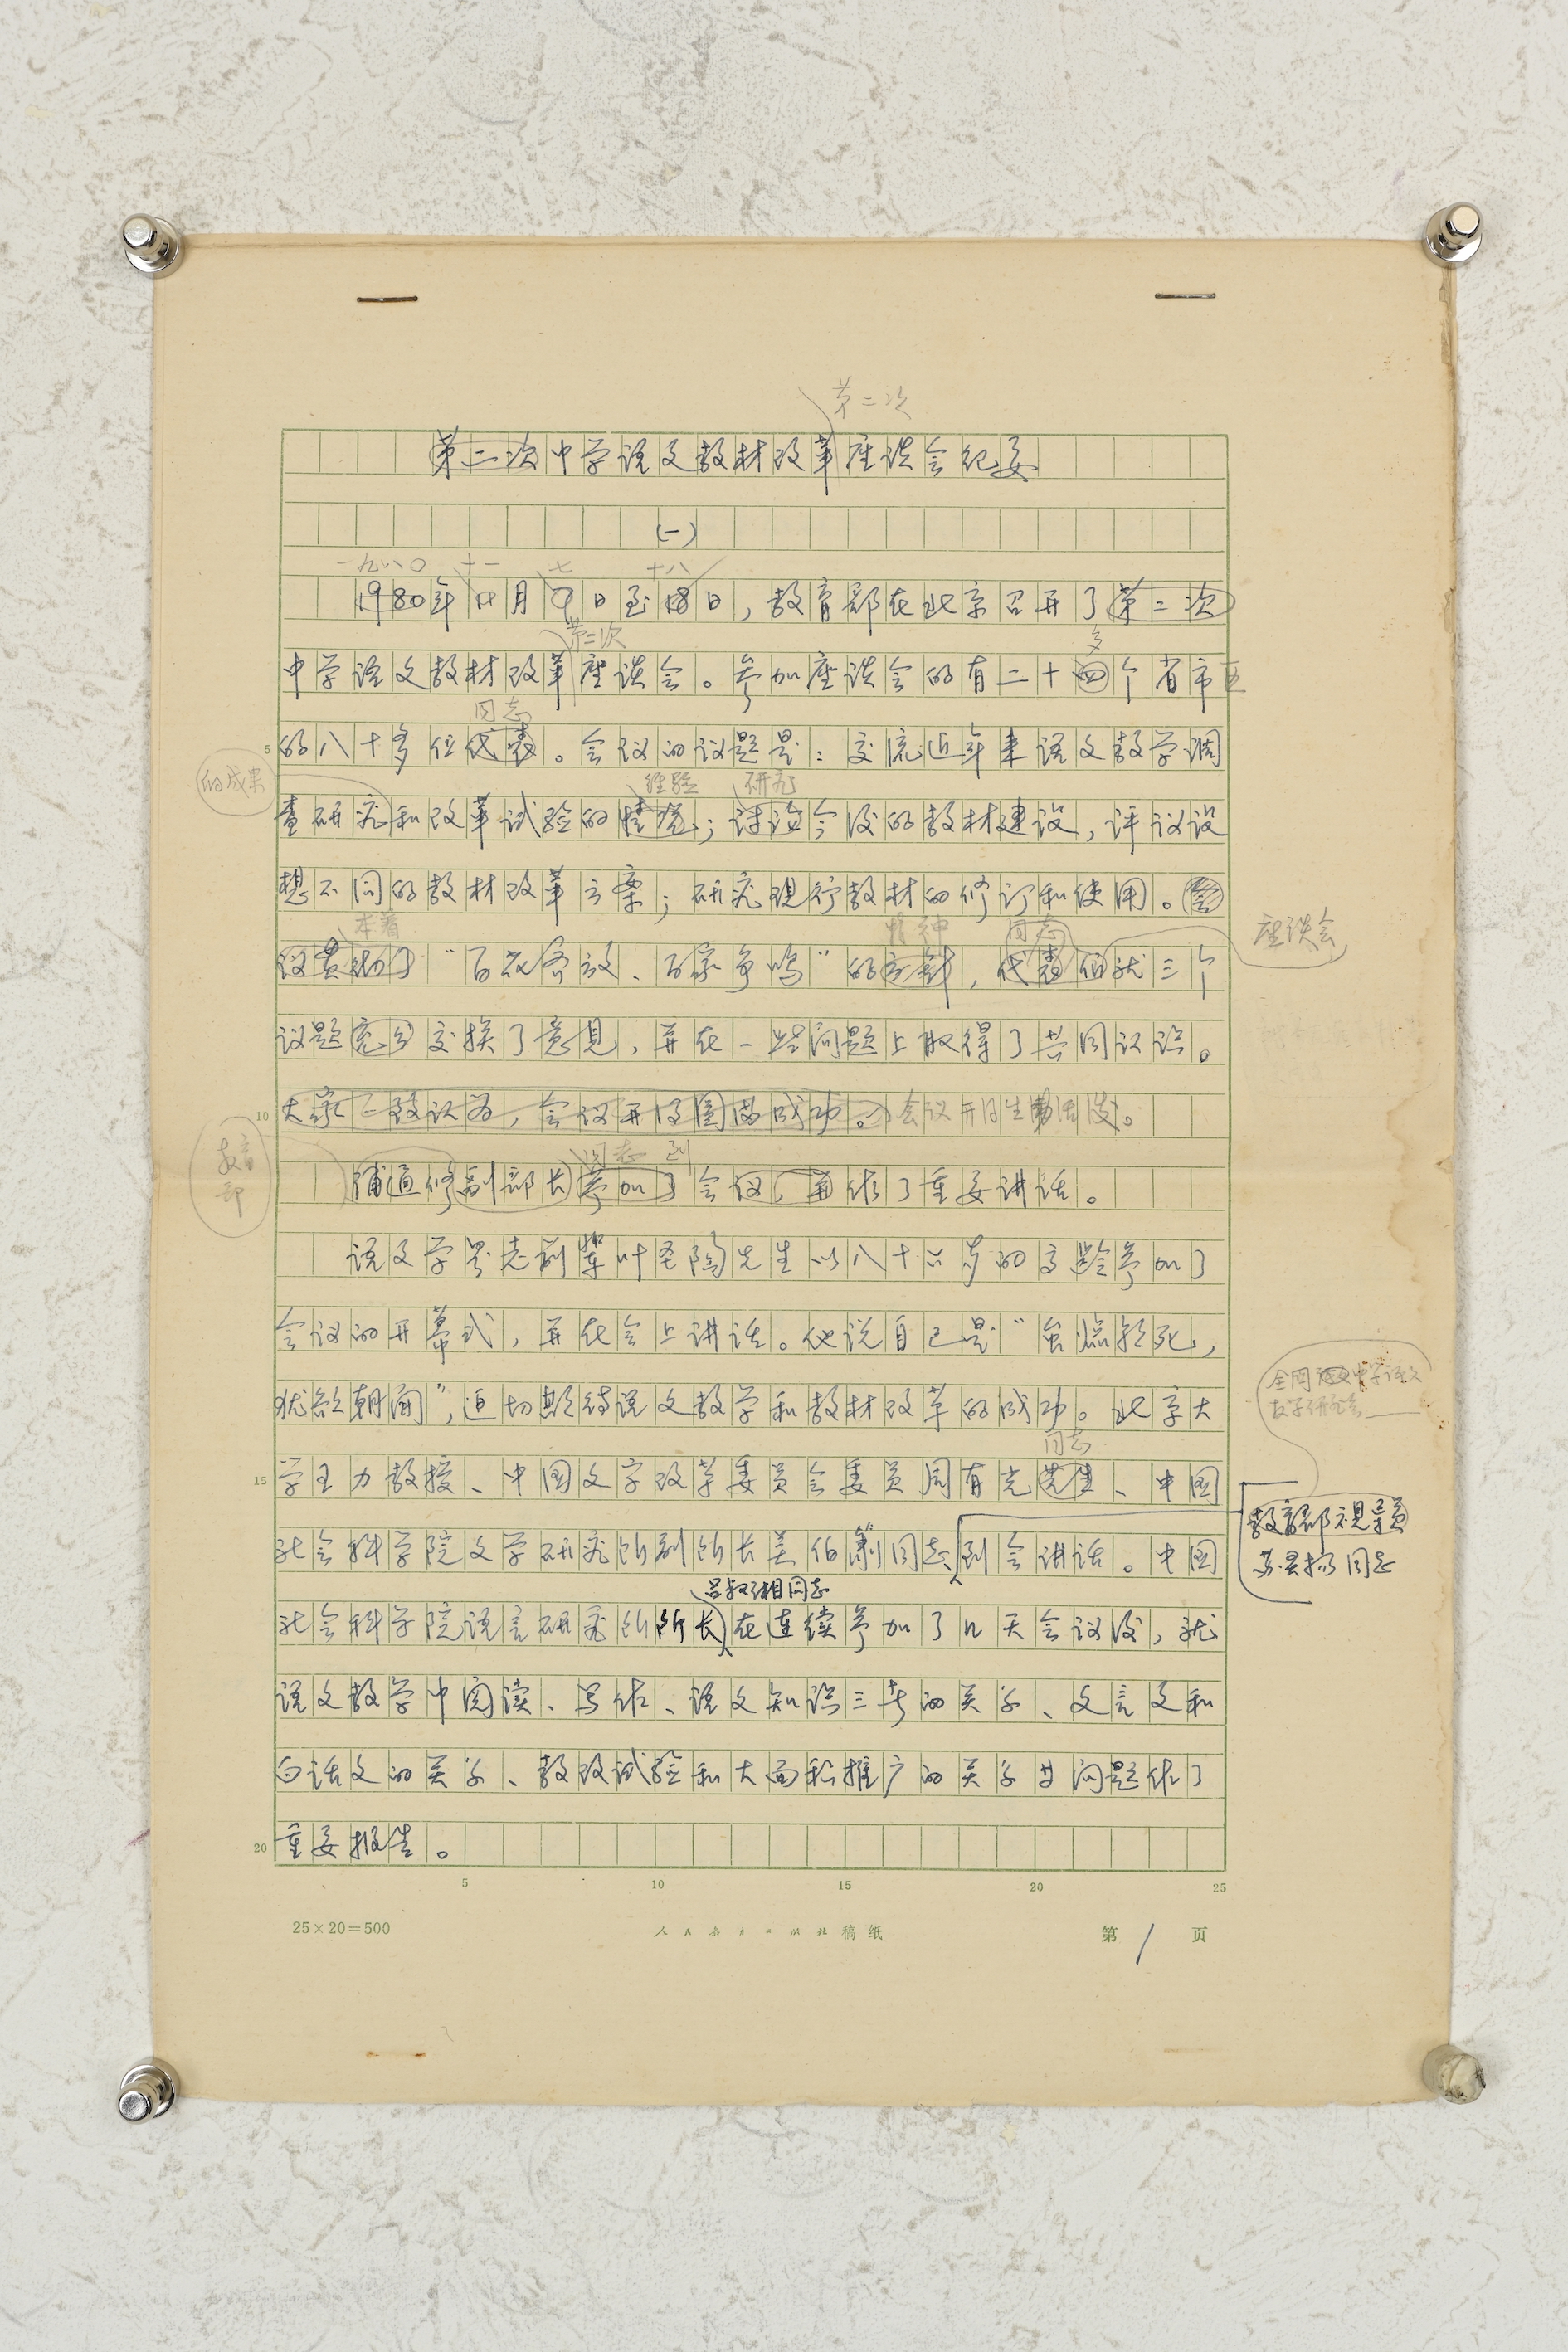 第二次
第二次中学语文教材改革座谈会纪要
(一)
一九八〇 十一 七 十八
1980年11月7日至18日，教育部在北京召开了第二次
第二次 多
中学语文教材改革座谈会。参加座谈会的有二十四个省市区
同志
5 的八十多位代表。会议的议题是：交流近年来语文教学调
的成果
经验 研究
查研究和改革试验的情况；讨论今后的教材建设，评议设
想不同的教材改革方案；研究现行教材的修订和使用。会
本着 精神 同志 座谈会
议贯彻了“百花齐放、百家争鸣”的方针，代表们就三个
议题充分交换了意见，并在一些问题上取得了共同认识。
10 大家一致认为，会议开得圆满成功。会议开的生动活泼。
教育部
同志 到
浦通修副部长参加了会议，并作了重要讲话。
语文学界老前辈叶圣陶先生以八十六岁的高龄参加了
会议的开幕式，并在会上讲话。他说自己是“虽临夕死，
全国中学语文
教学研究会
犹欲朝闻”，迫切期待语文教学和教材改革的成功。北京大
同志
15 学王力教授、中国文字改革委员会委员周有光先生、中国
教育部视导员
苏灵扬同志
社会科学院文学研究所副所长吴伯箫同志到会讲话。中国
吕叔湘同志
社会科学院语言研究所所长在连续参加了几天会议后，就
语文教学中阅读、写作、语文知识三者的关系、文言文和
白话文的关系、教改试验和大面积推广的关系等问题作了
20 重要报告。
5 10 15 20 25
25×20=500 人民教育出版社稿纸 第1页